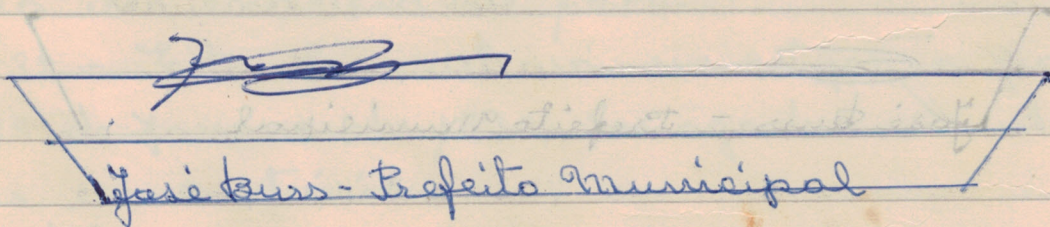 José Buss - Prefeito Municipal